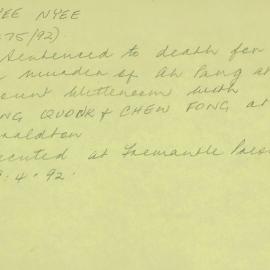 YEE NYEE
75/92)
Sentenced to death for
murder of Ah Pang at
ount Wittenoom with
NG QUONK & CHEW FONG at
raldton
ecuted at Fremantle
4.92.